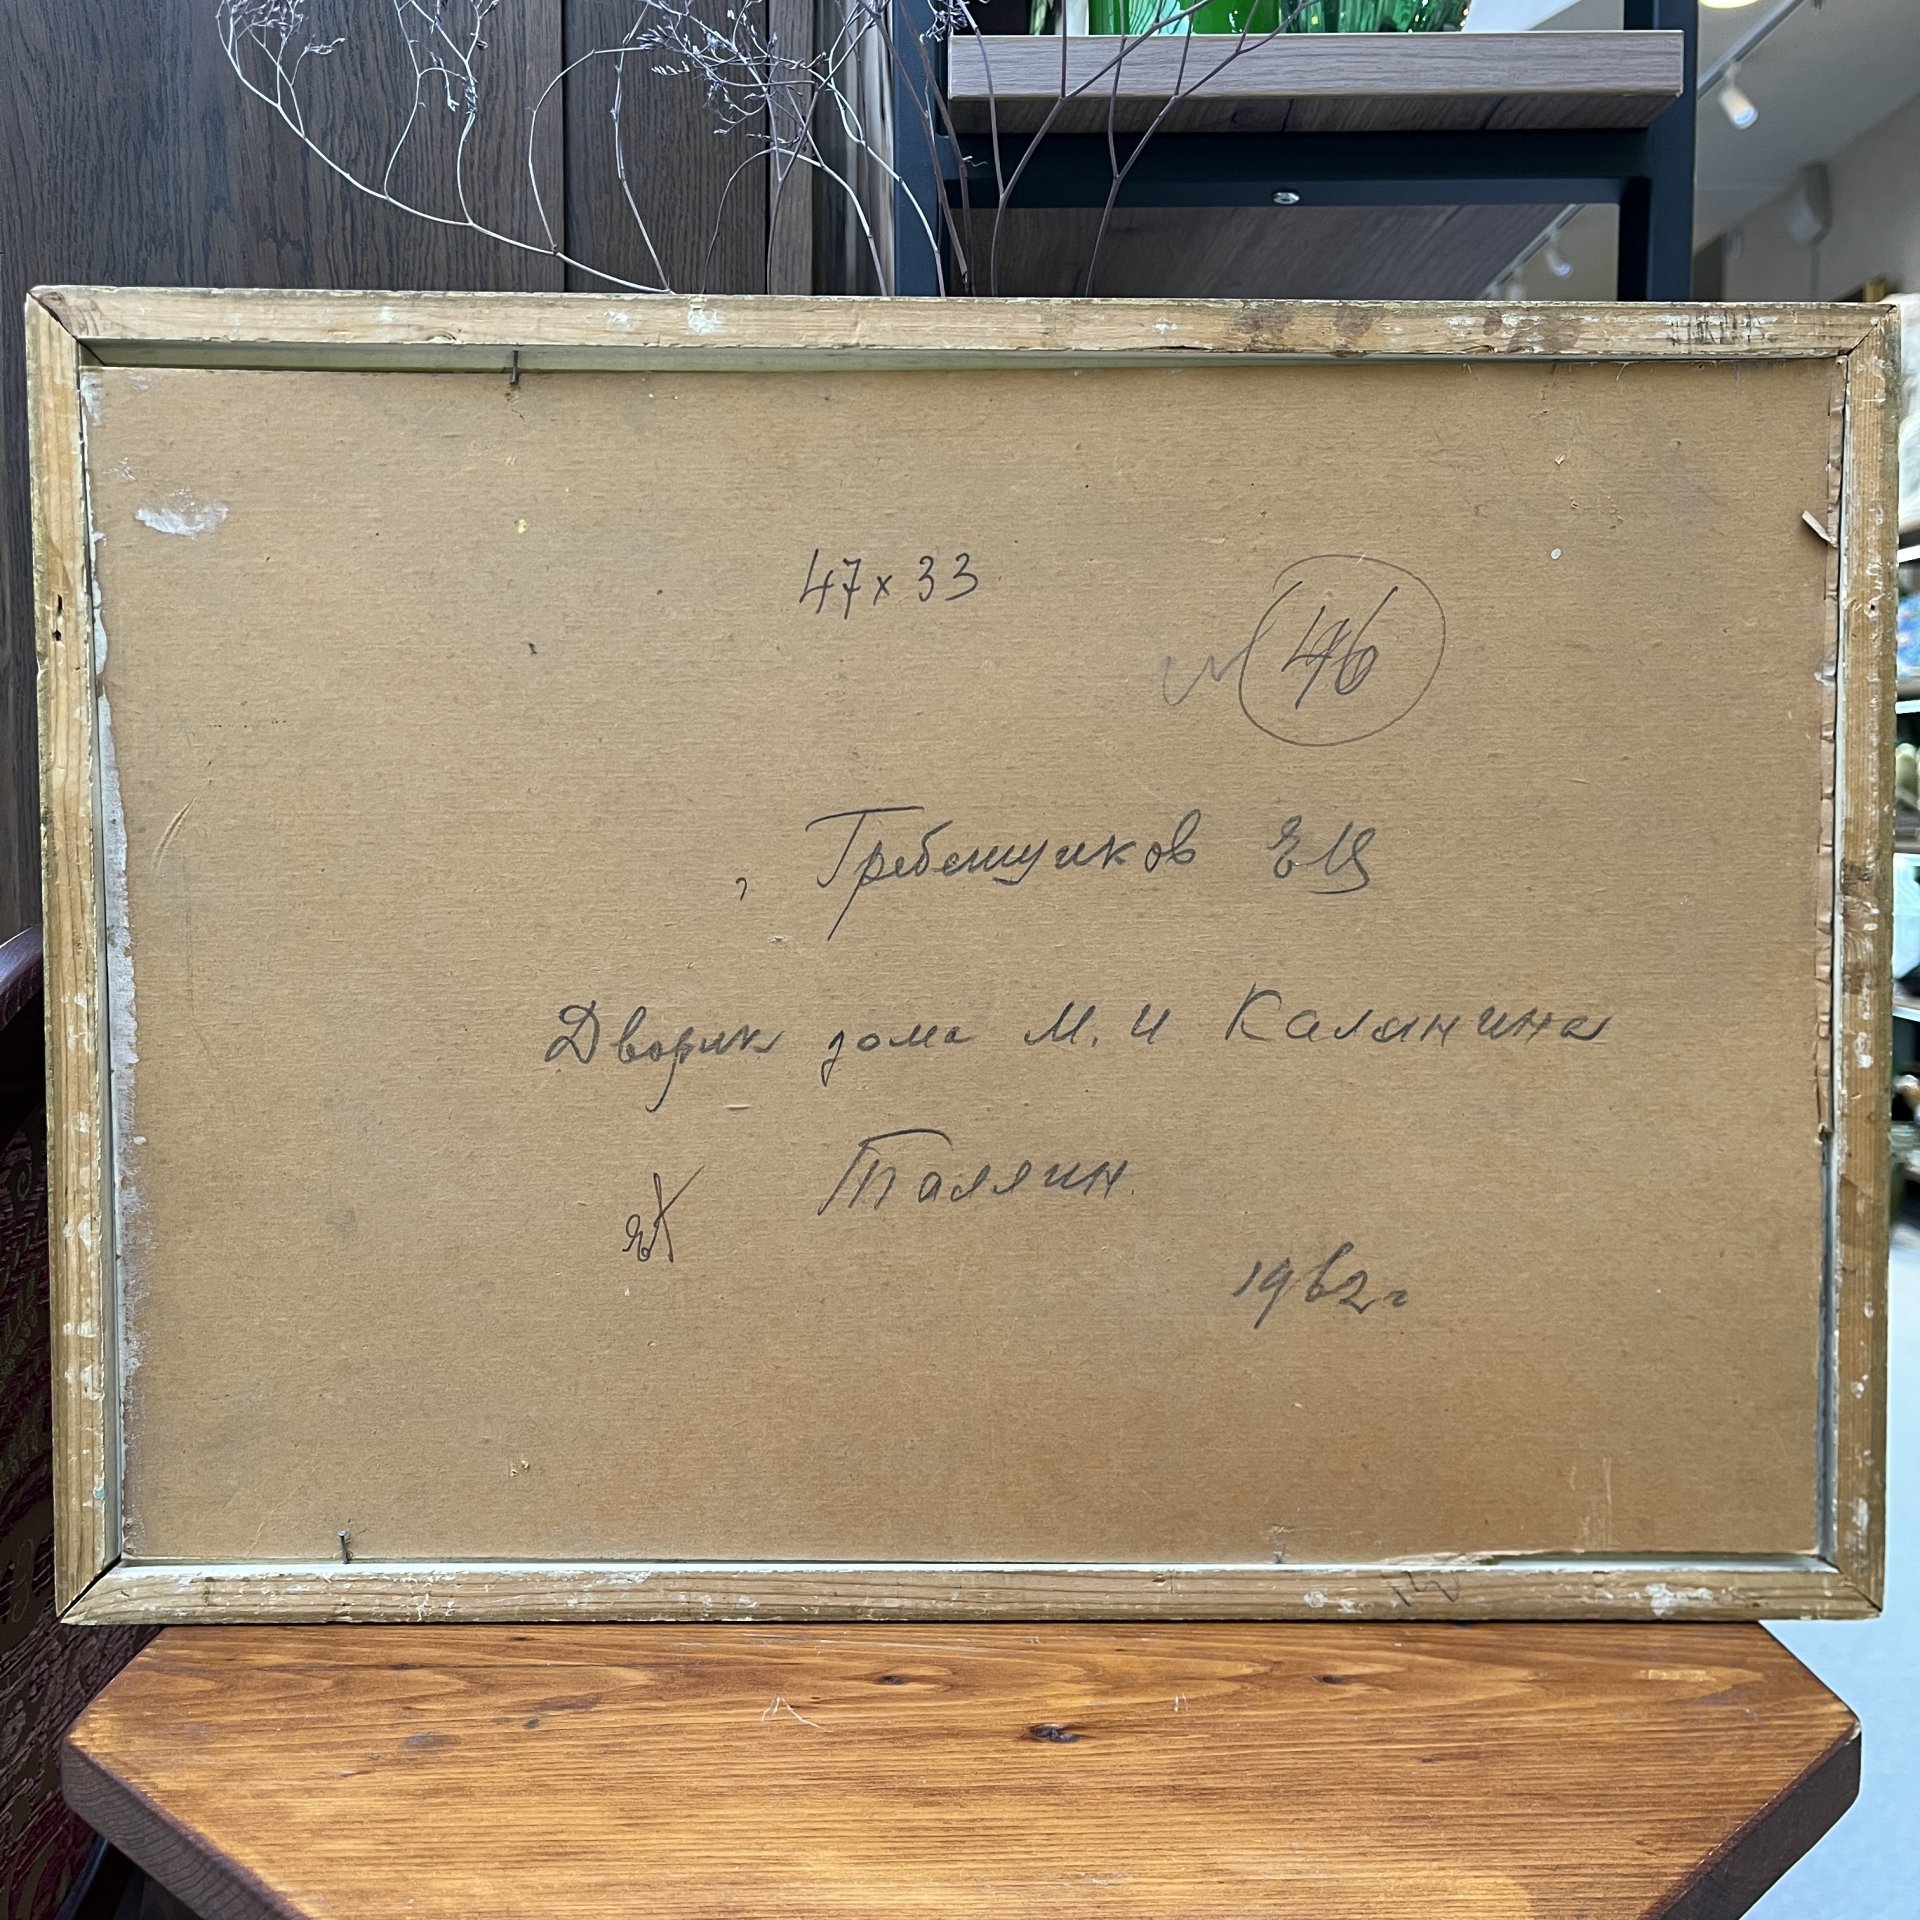 47x33
46
Гребенщиков
Дворик дома М. И Калинина
Таллин.
1962г